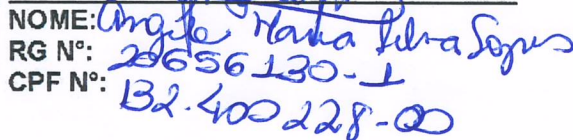 NOME: Angela Maria Silva Sopres
RG Nº: 20656130-1
CPF Nº: 132.400228-00